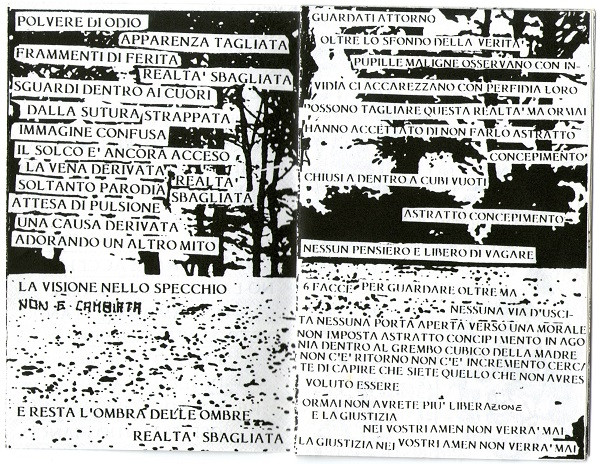 POLVERE DI ODIO
APPARENZA TAGLIATA
FRAMMENTI DI FERITA
REALTA' SBAGLIATA
SGUARDI DENTRO AI CUORI
DALLA SUTURA STRAPPATA
IMMAGINE CONFUSA
IL SOLCO E' ANCORA ACCESO
LA VENA DERIVATA
SOLTANTO PARODIA
REALTA'
SBAGLIATA
ATTESA DI PULSIONE
UNA CAUSA DERIVATA
ADORANDO UN ALTRO MITO
LA VISIONE NELLO SPECCHIO
NON È CAMBIATA
E RESTA L'OMBRA DELLE OMBRE
REALTA' SBAGLIATA
GUARDATI ATTORNO
OLTRE LO SFONDO DELLA VERITA'
PUPILLE MALIGNE OSSERVANO CON IN-
VIDIA CI ACCAREZZANO CON PERFIDIA LORO
POSSONO TAGLIARE QUESTA REALTA' MA ORMAI
HANNO ACCETTATO DI NON FARLO ASTRATTO
CONCEPIMENTO
CHIUSI A DENTRO A CUBI VUOTI
ASTRATTO CONCEPIMENTO
NESSUN PENSIERO E LIBERO DI VAGARE
6 FACCE PER GUARDARE OLTRE MA
NESSUNA VIA D'USCI-
TA NESSUNA PORTA APERTA VERSO UNA MORALE
NON IMPOSTA ASTRATTO CONCIPIMENTO IN AGO
NIA DENTRO AL GREMBO CUBICO DELLA MADRE
NON C'E' RITORNO NON C'E' INCREMENTO CERCA
TE DI CAPIRE CHE SIETE QUELLO CHE NON AVRES
VOLUTO ESSERE
ORMAI NON AVRETE PIU' LIBERAZIONE
E LA GIUSTIZIA
NEI VOSTRI AMEN NON VERRA' MAI
LA GIUSTIZIA NEI VOSTRI AMEN NON VERRA' MAI